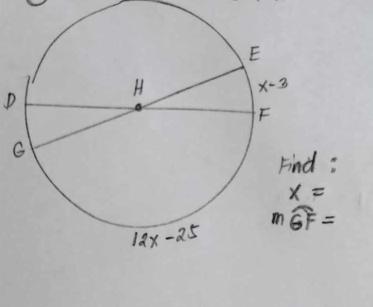 E
H
x-3
D
F
G
Find :
x =
m GF =
12x-25